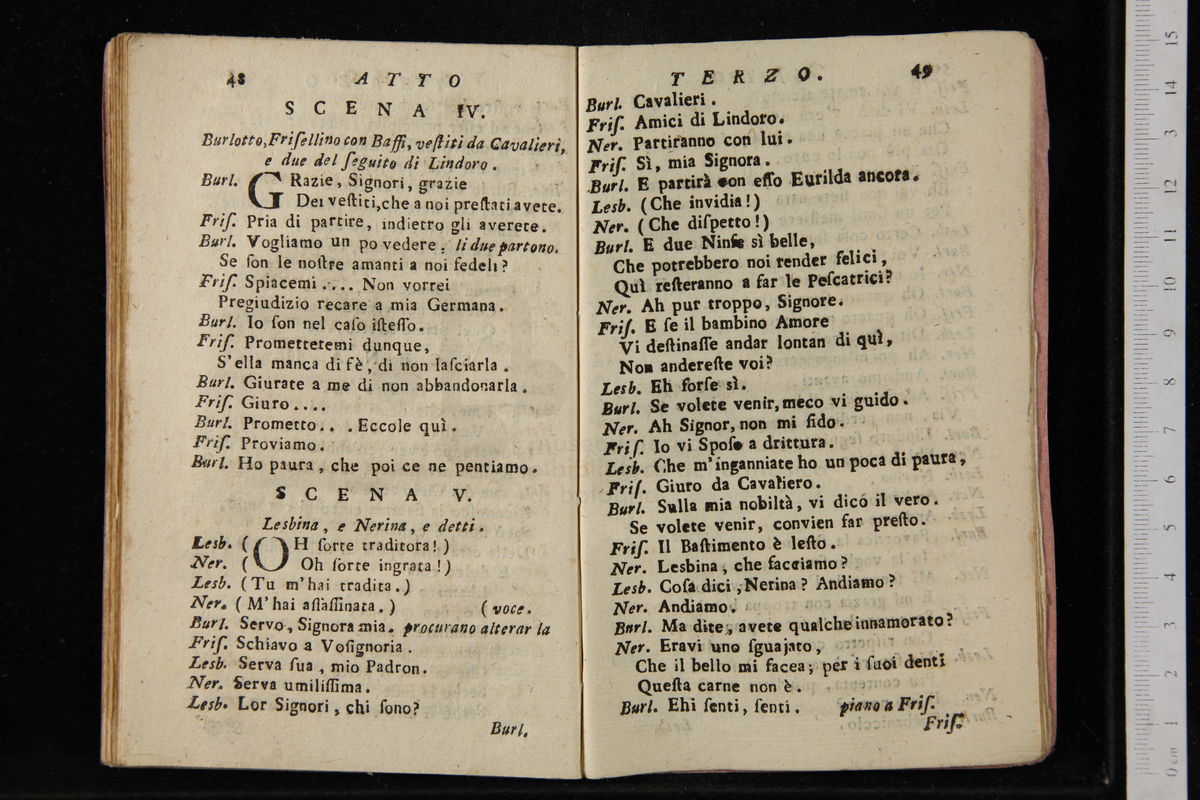 48 ATTO
SCENA IV.
Burlotto, Friſellino con Baffi, veſtiti da Cavalieri,
e due del ſeguito di Lindoro.
Burl. GRazie, Signori, grazie
Dei veſtiti, che a noi preſtati avete.
Friſ. Pria di partire, indietro gli averete.
Burl. Vogliamo un po vedere. li due partono.
Se ſon le noſtre amanti a noi fedeli?
Friſ. Spiacemi .... Non vorrei
Pregiudizio recare a mia Germana.
Burl. Io ſon nel caſo iſteſſo.
Friſ. Promettetemi dunque,
S'ella manca di fè, di non laſciarla.
Burl. Giurate a me di non abbandonarla.
Friſ. Giuro....
Burl. Prometto.. . Eccole quì.
Friſ. Proviamo.
Burl. Ho paura, che poi ce ne pentiamo.
SCENA V.
Lesbina, e Nerina, e detti.
Lesb. (OH ſorte traditora!)
Ner. ( Oh ſorte ingrata!)
Lesb. (Tu m'hai tradita.)
Ner. (M'hai aſſaſſinata.) (voce.
Burl. Servo, Signora mia. procurano alterar la
Friſ. Schiavo a Voſignoria.
Lesb. Serva ſua, mio Padron.
Ner. Serva umiliſſima.
Lesb. Lor Signori, chi ſono?
Burl.
TERZO. 49
Burl. Cavalieri.
Friſ. Amici di Lindoro.
Ner. Partiranno con lui.
Friſ. Sì, mia Signora.
Burl. E partirà con eſſo Eurilda ancora.
Lesb. (Che invidia!)
Ner. (Che diſpetto!)
Burl. E due Ninfe sì belle,
Che potrebbero noi render felici,
Quì reſteranno a far le Peſcatrici?
Ner. Ah pur troppo, Signore.
Friſ. E ſe il bambino Amore
Vi deſtinaſſe andar lontan di quì,
Non andereſte voi?
Lesb. Eh forſe sì.
Burl. Se volete venir, meco vi guido.
Ner. Ah Signor, non mi fido.
Friſ. Io vi Spoſo a drittura.
Lesb. Che m'inganniate ho un poca di paura,
Friſ. Giuro da Cavaliero.
Burl. Sulla mia nobiltà, vi dico il vero.
Se volete venir, convien far preſto.
Friſ. Il Baſtimento è leſto.
Ner. Lesbina, che facciamo?
Lesb. Coſa dici, Nerina? Andiamo?
Ner. Andiamo.
Burl. Ma dite, avete qualche innamorato?
Ner. Eravi uno ſguajato,
Che il bello mi facea; per i ſuoi denti
Queſta carne non è.
Burl. Ehi ſenti, ſenti. piano a Friſ.
Friſ.
15
14
13
12
11
10
9
8
7
6
5
4
3
2
1
0 cm